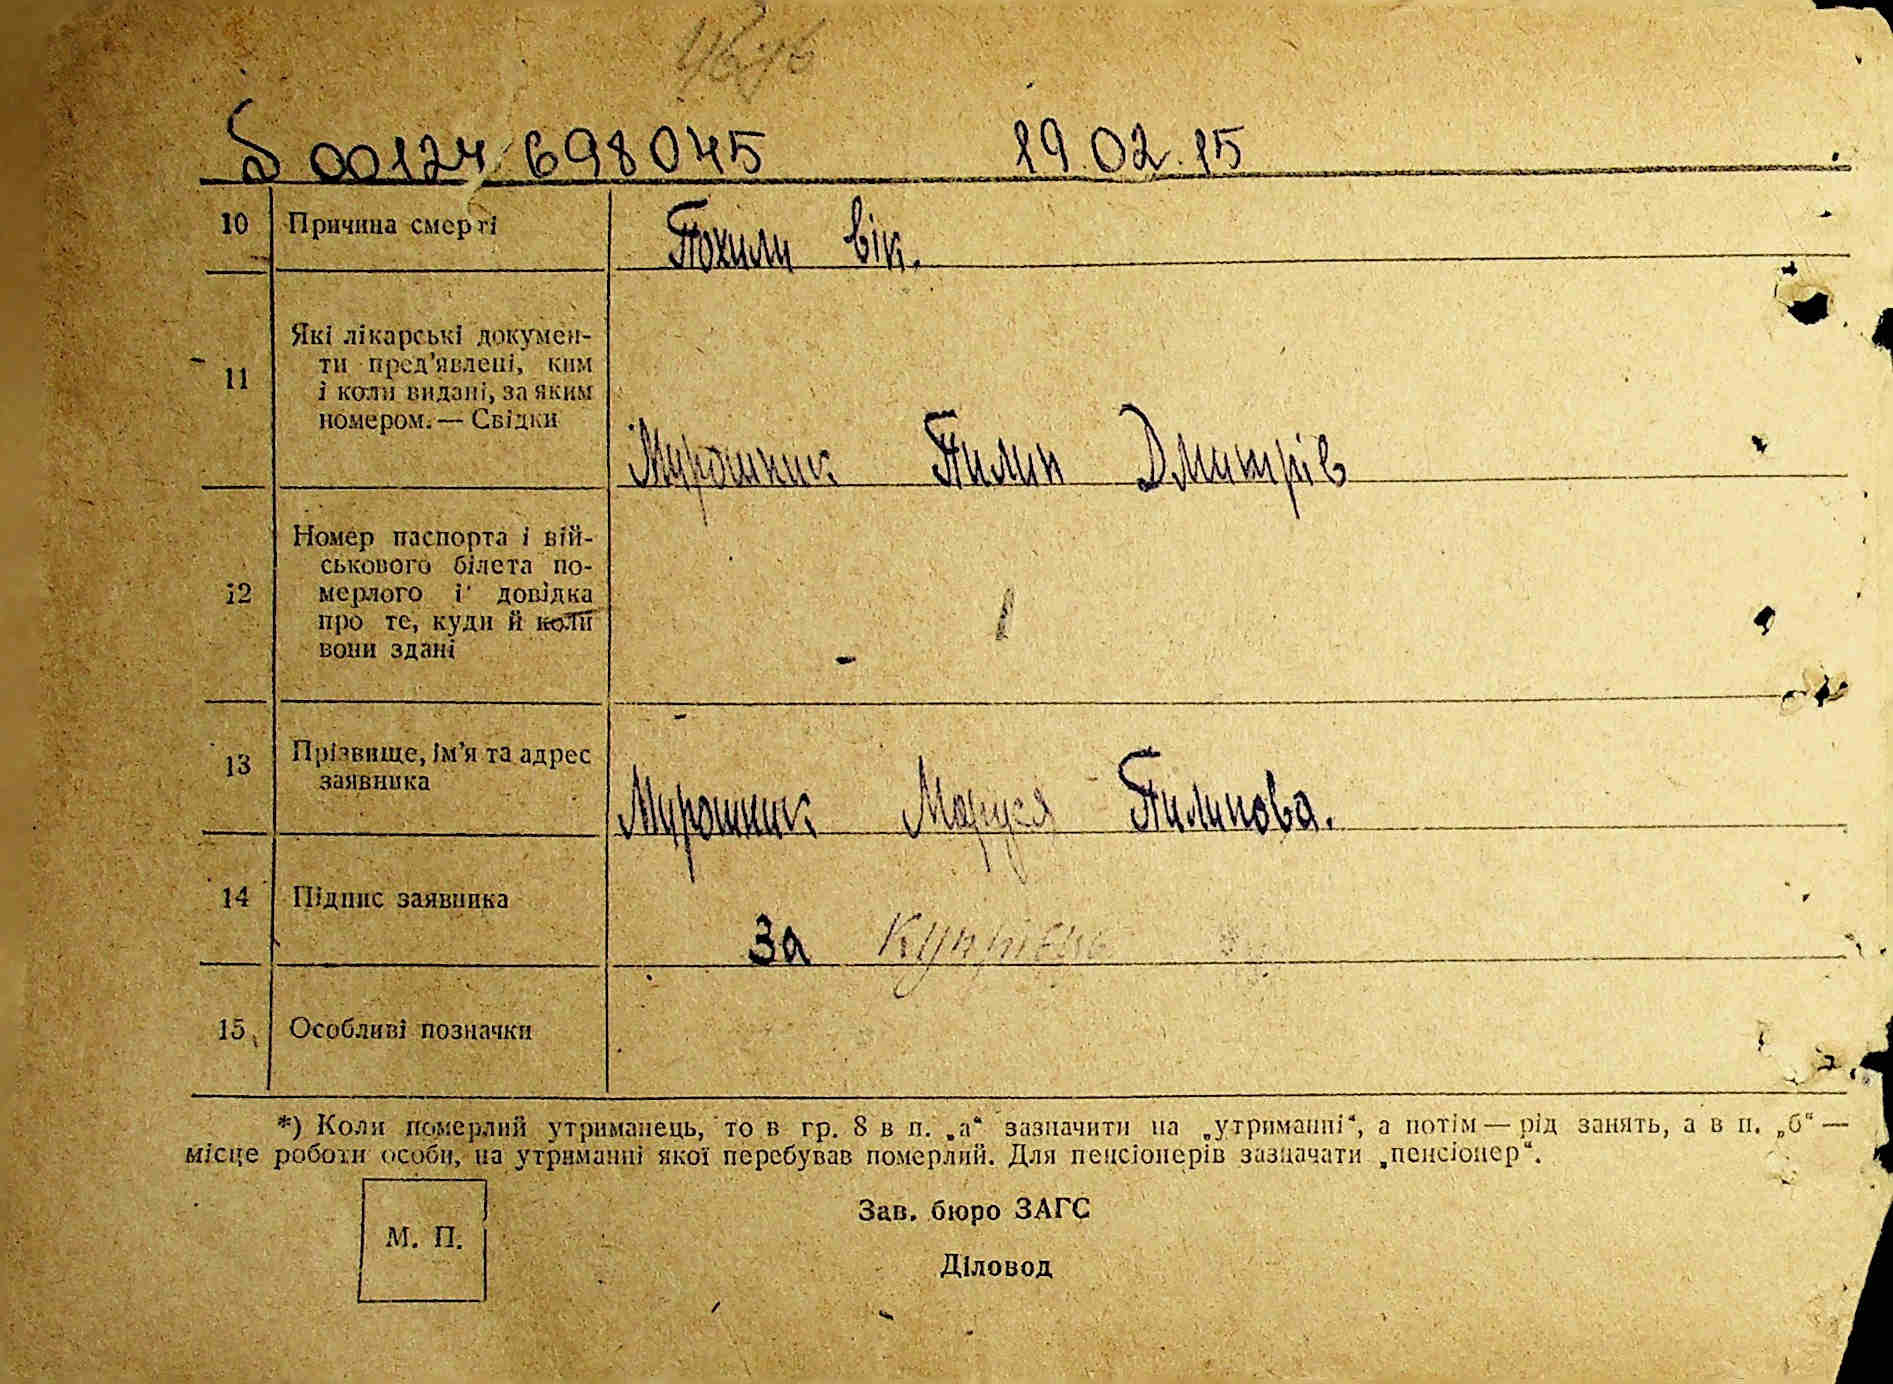 00124 698045 19.02.15
10 Причина смерті Похили вік.
11 Які лікарські докумен-
ти пред'явлені, ким
і коли видані, за яким
номером. — Свідки
Мурошник Пилип Дмитрів
12 Номер паспорта і вій-
ськового білета по-
мерлого і довідка
про те, куди й коли
вони здані
13 Прізвище, ім'я та адрес
заявника
Мурошник Маруся Пилипова.
14 Підпис заявника За
15 Особливі позначки
*) Коли померлий утриманець, то в гр. 8 в п. „а“ зазначити на „утриманні“, а потім — рід занять, а в п. „б“ —
місце роботи особи, на утриманні якої перебував померлий. Для пенсіонерів зазначати „пенсіонер“.
Зав. бюро ЗАГС
М. П.
Діловод